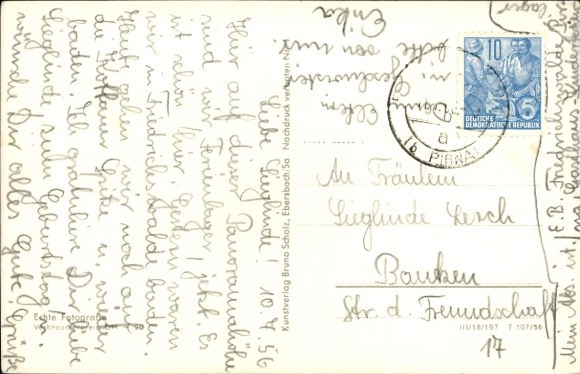 10.7.56
Liebe Sieglinde!
Hier auf dieser Panoramahöhe
sind wir Ferienlager jetzt. Es
ist schön hier. Gestern waren
wir in Friedrichswalde baden.
Heut gehen wir noch auf
die Höhe u. wieder
baden. Ich gratuliere Dir liebe
Sieglinde zum Geburtstag u.
wünsche Dir alles Gute. Grüße
Deine Eltern
u. Geschwister
bitte von mir.
Erika
Mein Abs. ist: E.B. Friedrich
lager
Kunstverlag Bruno Scholz, Ebersbach/Sa. Nachdruck verboten
10
5
DEUTSCHE
DEMOKRATISCHE REPUBLIK
a
PIRNA
An Fräulein
Sieglinde Lesch
Bautzen
Str. d. Freundschaft
17
III/18/197 T 107/56
Echte Fotografie
Verbraucherpreis DM